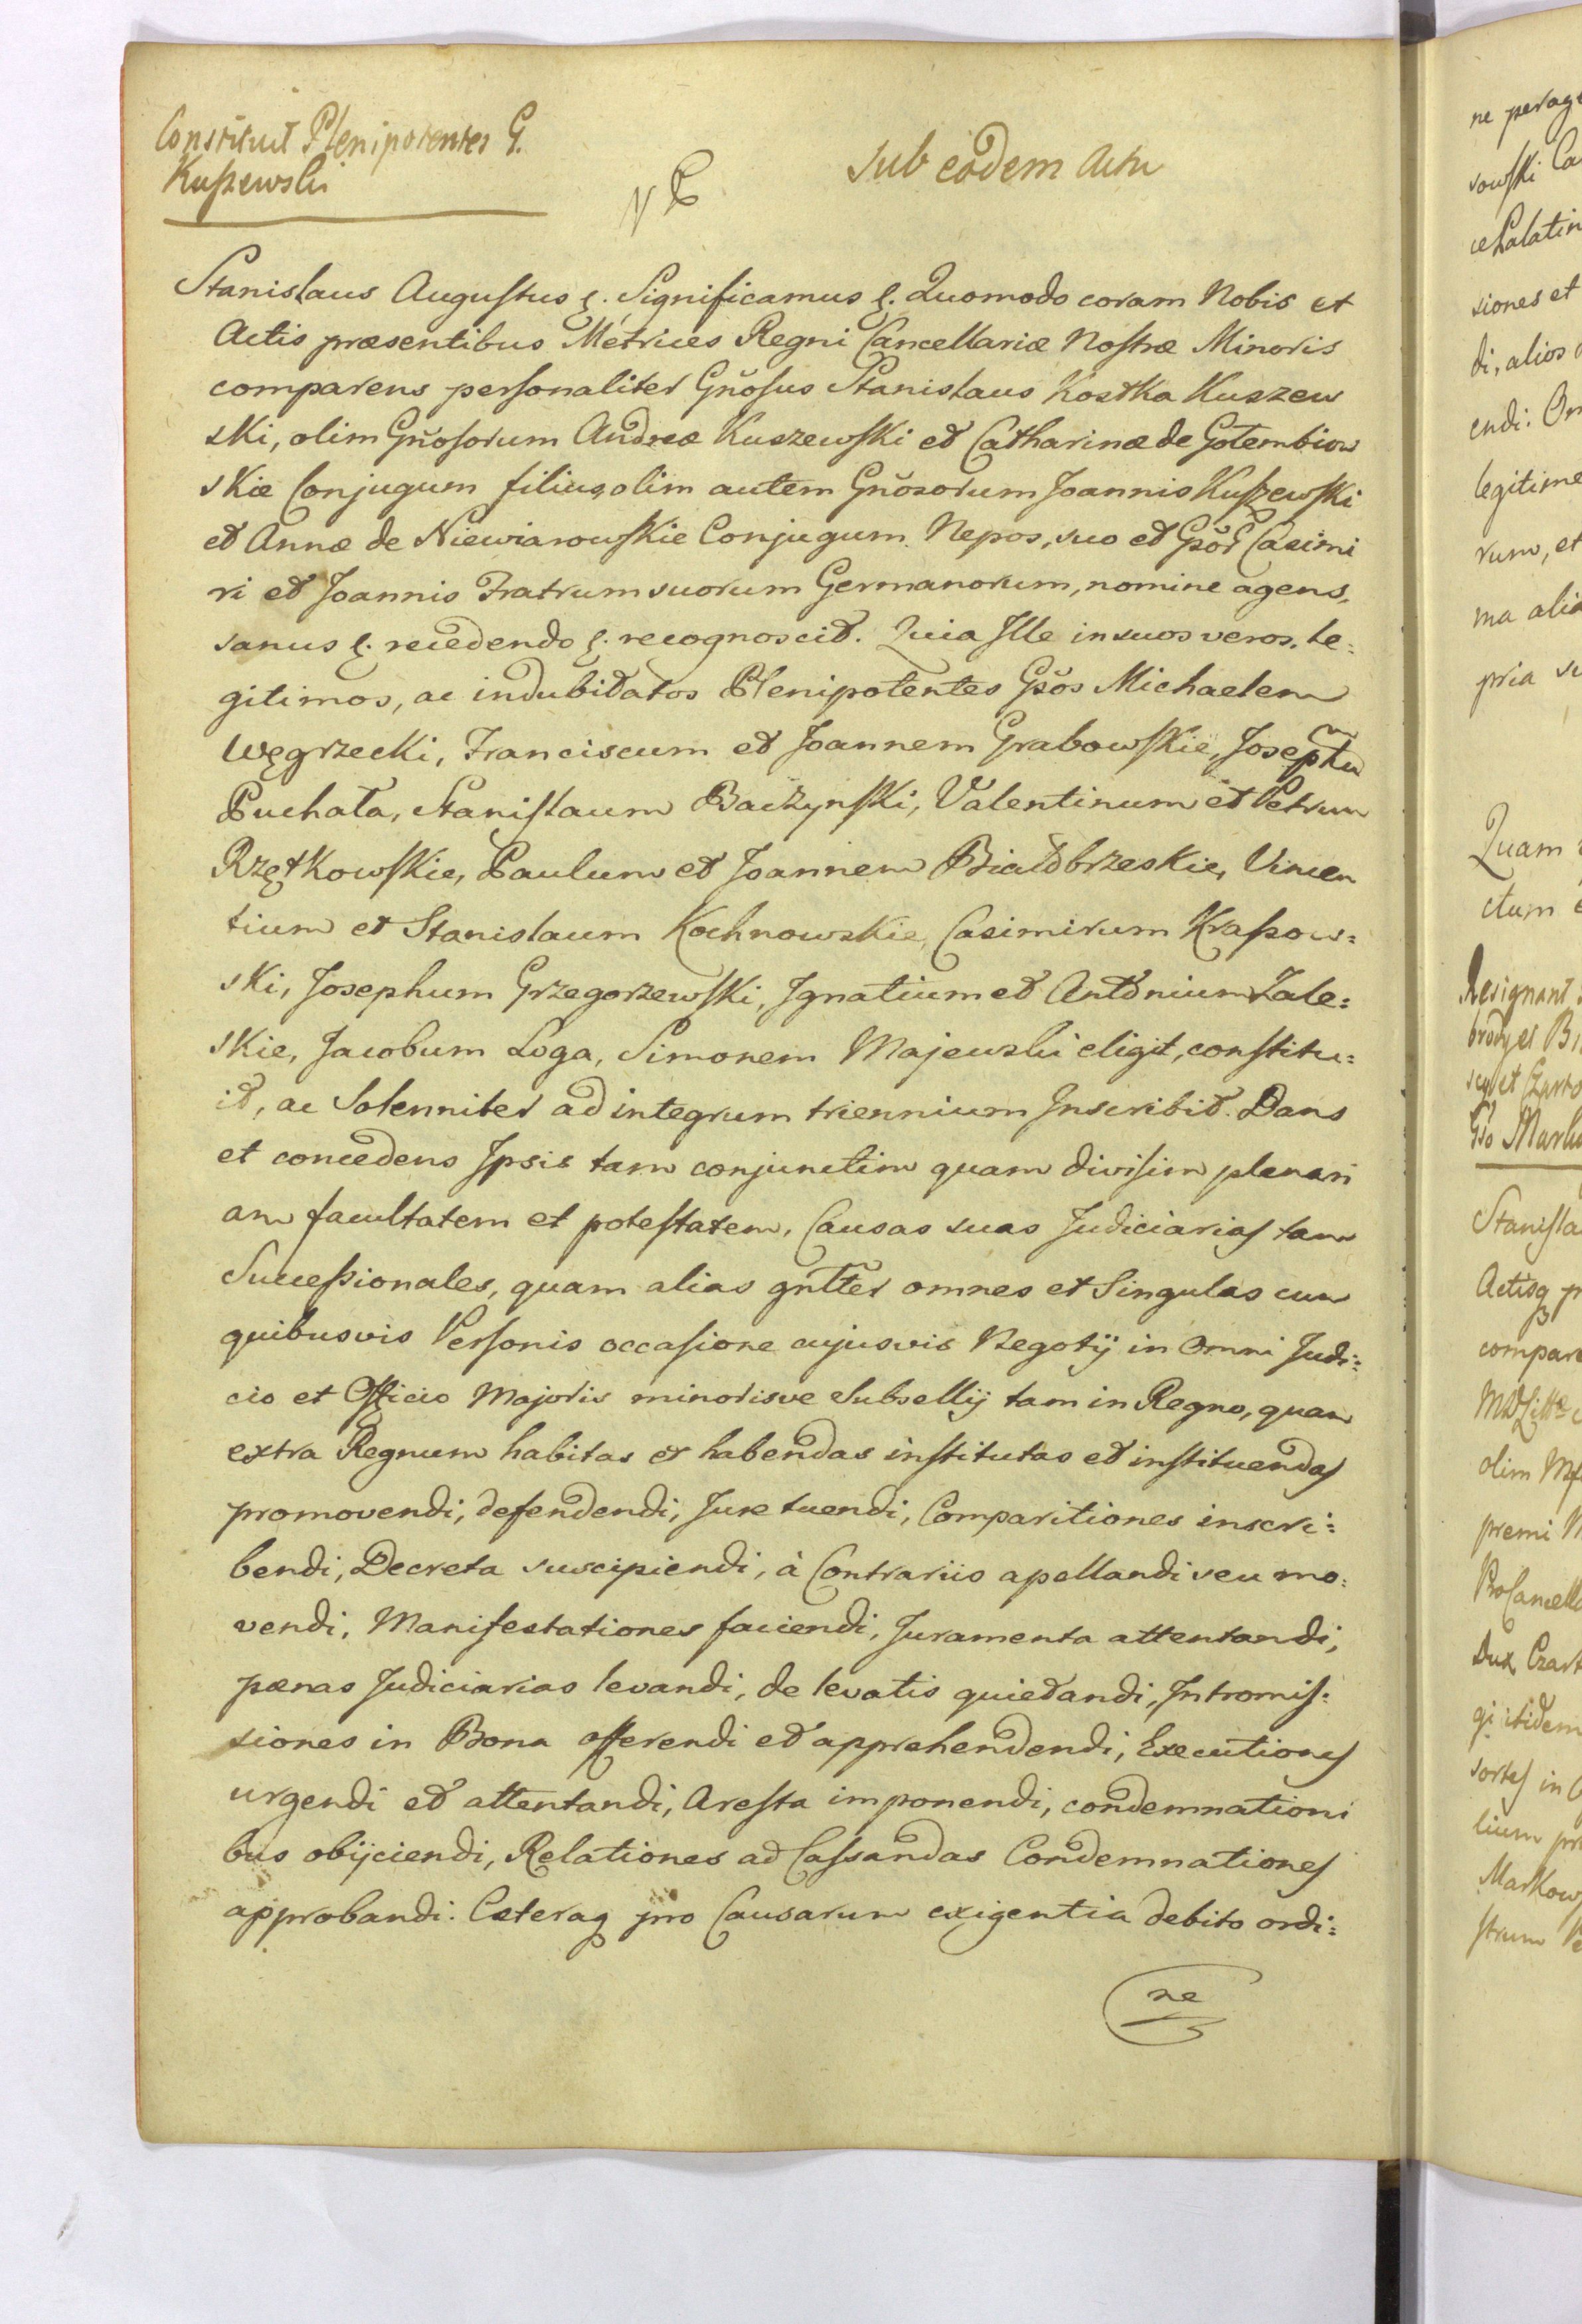 Constituit Plenipotentes G.
Kuszewski
Sub eodem Actu
Stanislaus Augustus &. Significamus &. Quomodo coram Nobis et
Actis præsentibus Metrices Regni Cancellariæ Nostræ Minoris
comparens personaliter Gñosus Stanislaus Kostka Kuszew
ski, olim Gñosorum Andreæ Kuszewski et Catharinæ de Gołembiow
skie Conjugum filius, olim autem Gñosorum Joannis Kuszewski
et Annæ de Niewiarowskie Conjugum Nepos, suo et Casimi
ri et Joannis Fratrum suorum Germanorum, nomine agens,
sanus &. recedendo &. recognoscit. Quia Ille in suos veros, le:
gitimos, ac indubitatos Plenipotentes Gsõs Michaelem
Węgrzecki, Franciscum et Joannem Grabowskie, Josephũ
Puchała, Stanislaum Baczynski, Valentinum et Petrum
Rzętkowskie, Paulum et Joannem Białobrzeskie, Vincen
tium et Stanislaum Kochnowskie, Casimirum Kraszow:
ski, Josephum Grzegorzewski, Ignatium et Antonium Zale:
skie, Jacobum Loga, Simonem Majewski eligit, constitu:
it, ac Solenniter ad integrum triennium Inscribit. Dans
et concedens Ipsis tam conjunctim quam divisim plenari
am facultatem et potestatem, Causas suas Judiciarias tam
Successionales, quam alias gñlter omnes et Singulas cum
quibusvis Personis occasione cujusvis Negotij in Omni Judi:
cio et Officio Majoris minorisve Subsellij tam in Regno, quam
extra Regnum habitas et habendas institutas et instituendas
promovendi, defendendi, Jure tuendi, Comparitiones inscri:
bendi, Decreta suscipiendi, à Contrariis apellandi seu mo:
vendi, Manifestationes faciendi, Juramenta attentandi,
pænas Judiciarias levandi, de levatis quietandi, Intromis:
siones in Bona offerendi et apprehendendi, Executiones
urgendi et attentandi, Aresta imponendi, condemnationi
bus obijciendi, Relationes ad Cassandas Condemnationes
approbandi. Cæteraq pro Causarum exigentia debito ordi:
ne